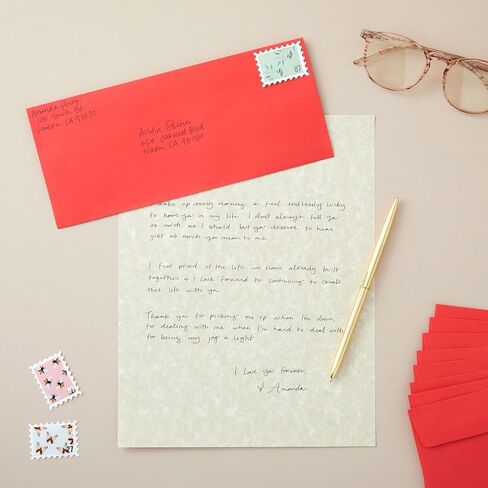 Amanda
South St.
Ventura, CA
Austin Glenn
354 Oakwood Blvd.
Napa, CA
07
I wake up every morning & feel endlessly lucky
to have you in my life. I don't always tell you
as much as I should, but you deserve to hear
just as much you mean to me.
I feel proud of the life we have already built
together & I look forward to continuing to create
this life with you.
Thank you for picking me up when I'm down,
for dealing with me when I'm hard to deal with
for being my joy & light
I love you forever,
Amanda
27